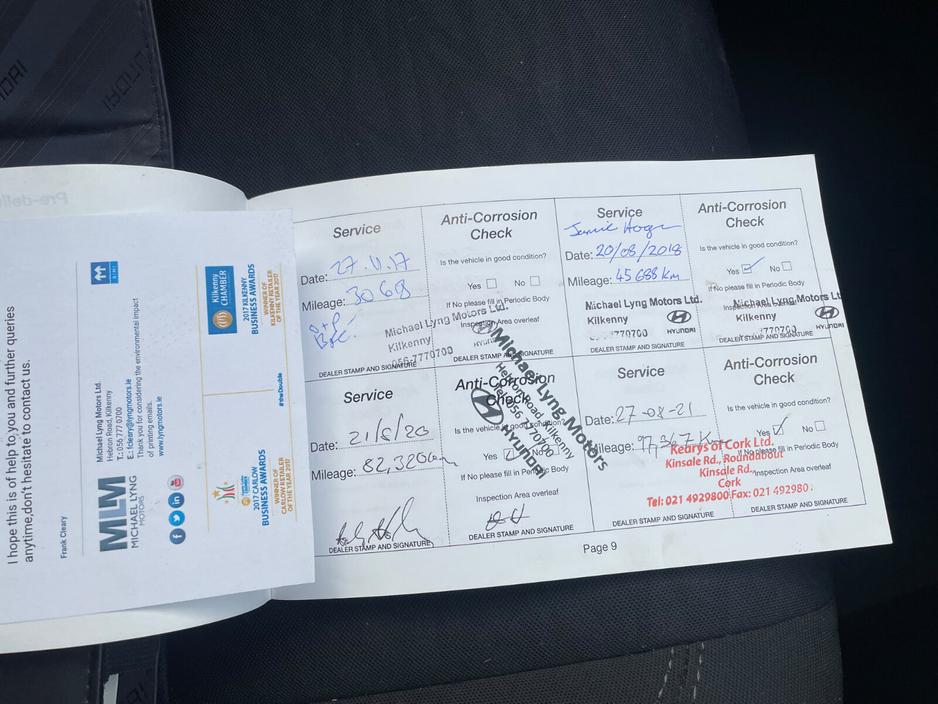 I hope this is of help to you and further queries
anytime,don't hesitate to contact us.
Frank Cleary
MLM
MICHAEL LYNG
MOTORS
Michael Lyng Motors Ltd.
Hebron Road, Kilkenny
T.: 056 777 0700
E.: fcleary@lyngmotors.ie
www.lyngmotors.ie
Thank you for considering the environmental impact
of printing emails.
Kilkenny
CHAMBER
2017 KILKENNY
BUSINESS AWARDS
WINNER OF
KILKENNY RETAILER
OF THE YEAR 2017
2017 CARLOW
BUSINESS AWARDS
WINNER OF
CARLOW RETAILER
OF THE YEAR 2017
#theDouble
Service
Date: 27.11.17
Mileage: 3068
Michael Lyng Motors Ltd.
Kilkenny
056-7770700
HYUNDAI
DEALER STAMP AND SIGNATURE
Anti-Corrosion
Check
Is the vehicle in good condition?
Yes No
If No please fill in Periodic Body
Inspection Area overleaf
DEALER STAMP AND SIGNATURE
Service
Date: 20/08/2018
Mileage: 45688 Km
Michael Lyng Motors Ltd.
Kilkenny
7770700
HYUNDAI
DEALER STAMP AND SIGNATURE
Anti-Corrosion
Check
Is the vehicle in good condition?
Yes No
If No please fill in Periodic Body
Inspection Area overleaf
Michael Lyng Motors Ltd.
Kilkenny
7770700
HYUNDAI
DEALER STAMP AND SIGNATURE
Service
Date: 21/5/20
Mileage: 82,325km
DEALER STAMP AND SIGNATURE
Anti-Corrosion
Check
Is the vehicle in good condition?
Yes No
If No please fill in Periodic Body
Inspection Area overleaf
Michael Lyng Motors
Hebron Road, Kilkenny
Tel: 056 7770700
HYUNDAI
DEALER STAMP AND SIGNATURE
Service
Date: 27-08-21
Mileage: 97,367 Km
Kearys of Cork Ltd.
Kinsale Rd., Roundabout
Kinsale Rd.,
Cork
Tel: 021 4929800 Fax: 021 492980
DEALER STAMP AND SIGNATURE
Anti-Corrosion
Check
Is the vehicle in good condition?
Yes No
If No please fill in Periodic Body
Inspection Area overleaf
DEALER STAMP AND SIGNATURE
Page 9